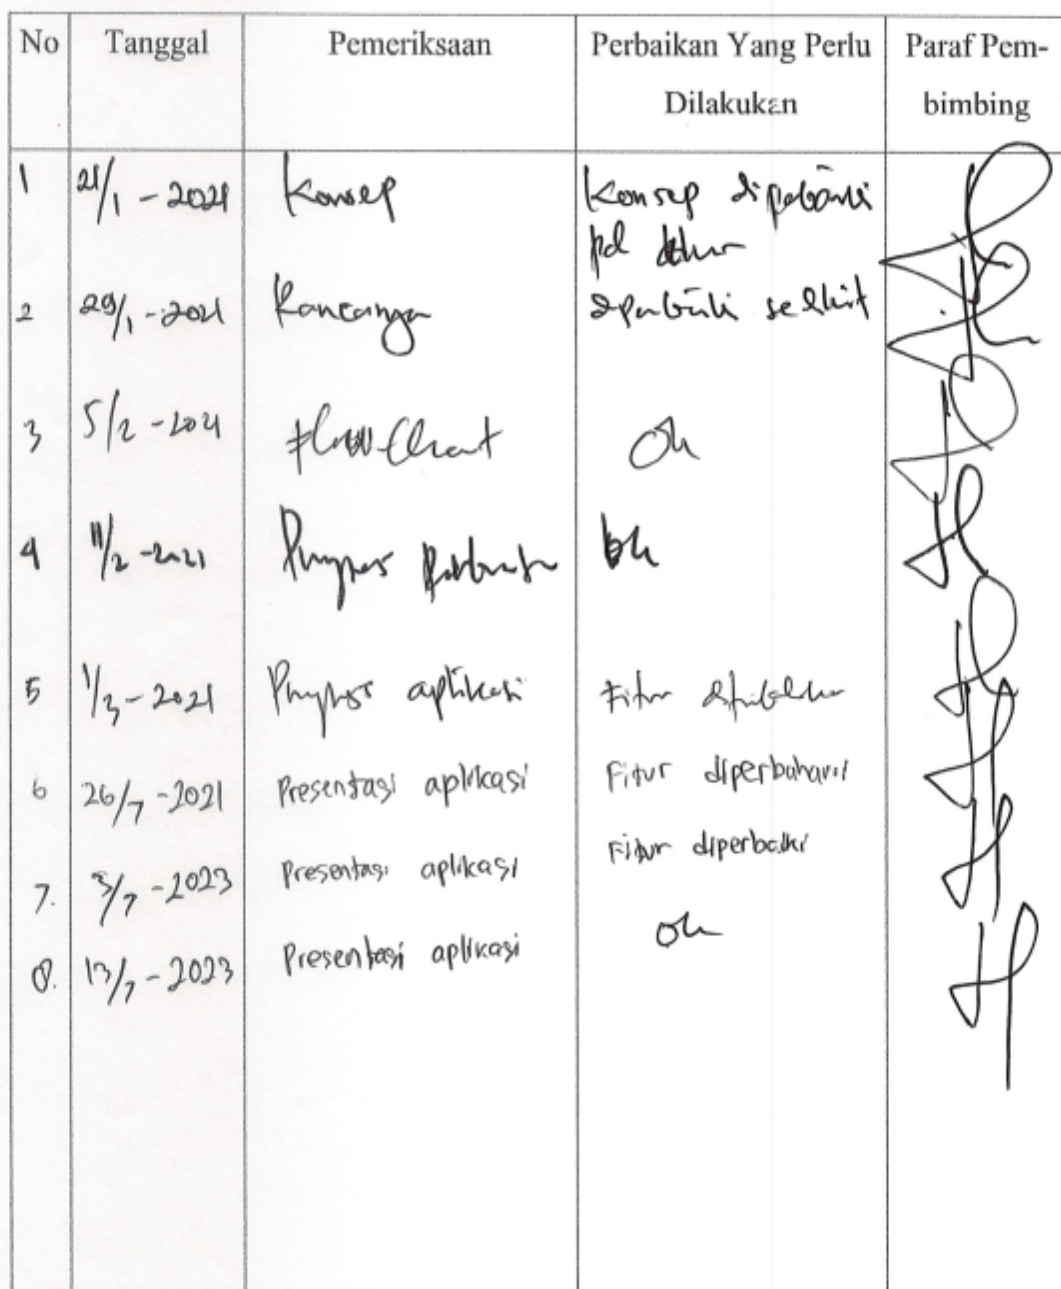 No Tanggal Pemeriksaan Perbaikan Yang Perlu Dilakukan Paraf Pem-bimbing
1 21/1 - 2021 Konsep Konsep
pd
2 29/1 - 2021 Rancangan
3 5/2 - 2021 Flow Chart Ok
4 11/2 - 2021 Ok
5 1/3 - 2021 aplikasi Fitur
6 26/7 - 2021 Presentasi aplikasi Fitur diperbaharui
7. 3/7 - 2023 Presentasi aplikasi Fitur diperbaiki
8. 13/7 - 2023 Presentasi aplikasi Ok